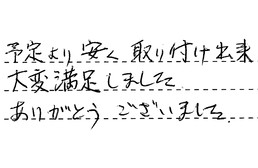 予定より安く取り付け出来
大変満足しました
ありがとうございました.